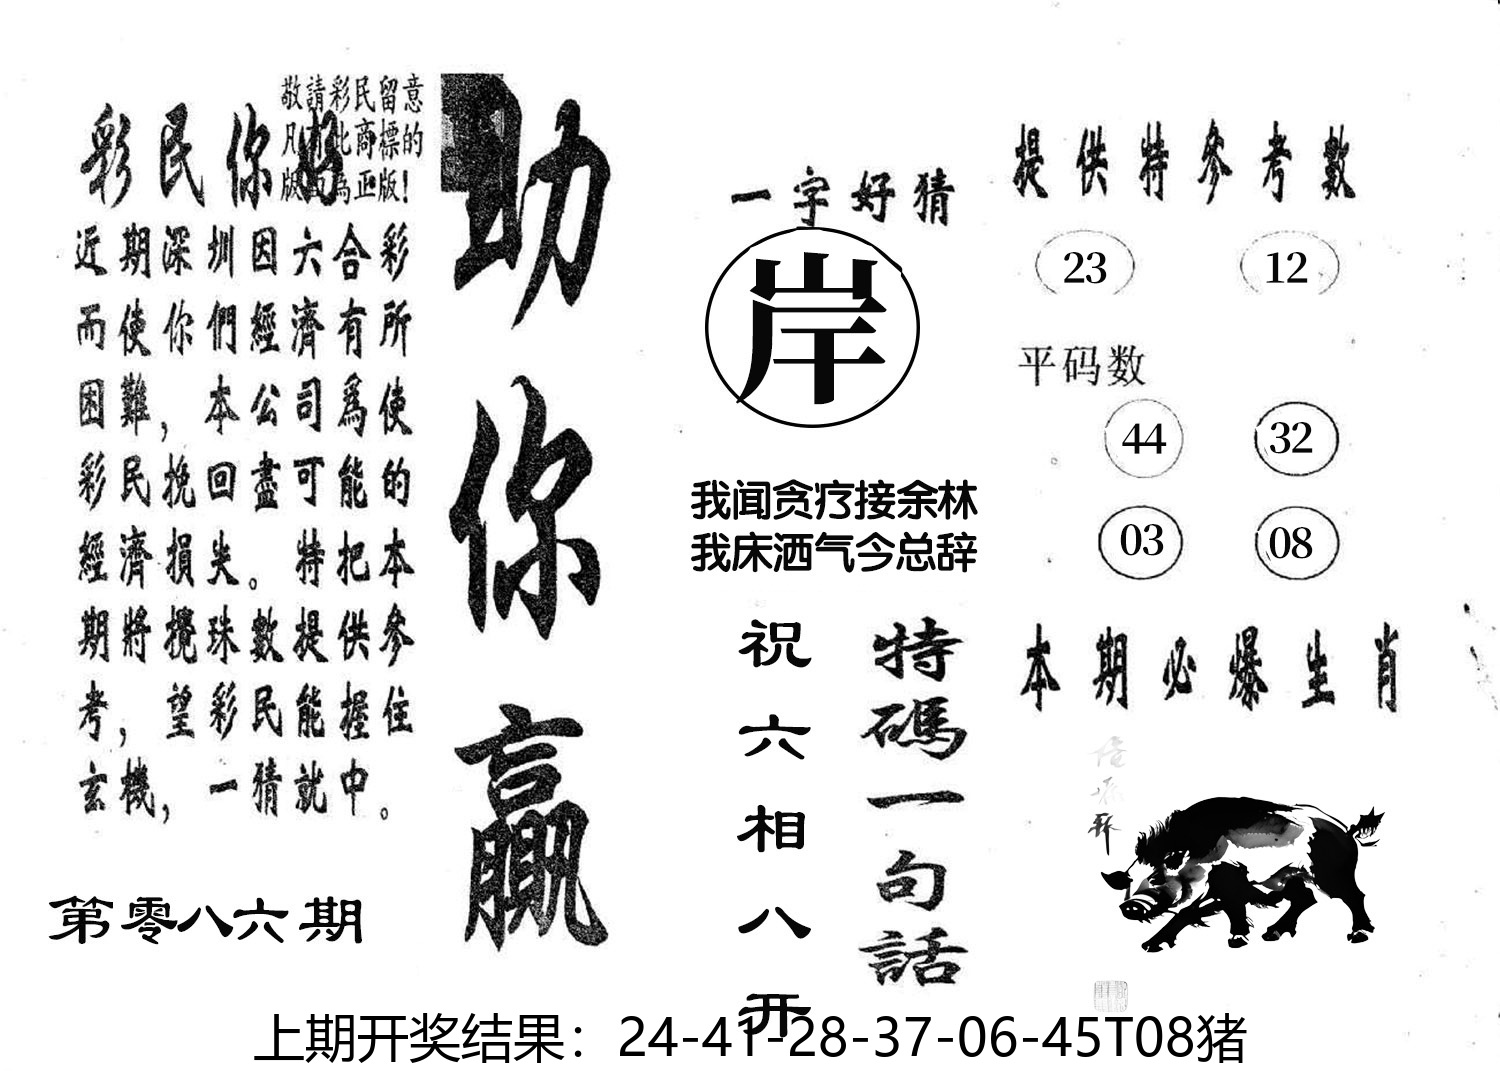 敬請彩民留意
凡有此商標的
版面為正版!
彩民你好
近期深圳因六合彩
而使你們經濟有所
困難,本公司爲使
彩民挽回盡可能的
經濟損失。特把本
期將攪珠數提供參
考,望彩民能握住
玄機,一猜就中。
第零八六期
助你贏
一字好猜
岸
我闻贪疗接余林
我床洒气今总辞
特碼一句話
祝六相八开
提供特參考數
23 12
平码数
44 32
03 08
本期必爆生肖
上期开奖结果：24-41-28-37-06-45T08猪